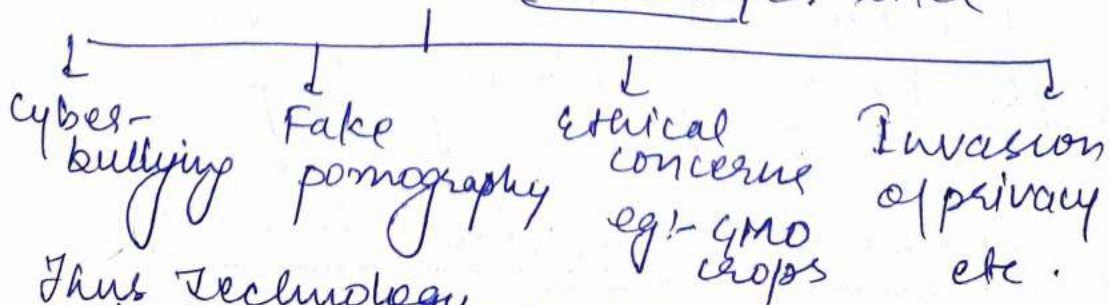 Cyber-
bullying
Fake
pornography
Ethical
concerns
eg:- GMO
crops
Invasion
of privacy
etc.
Thus Technology